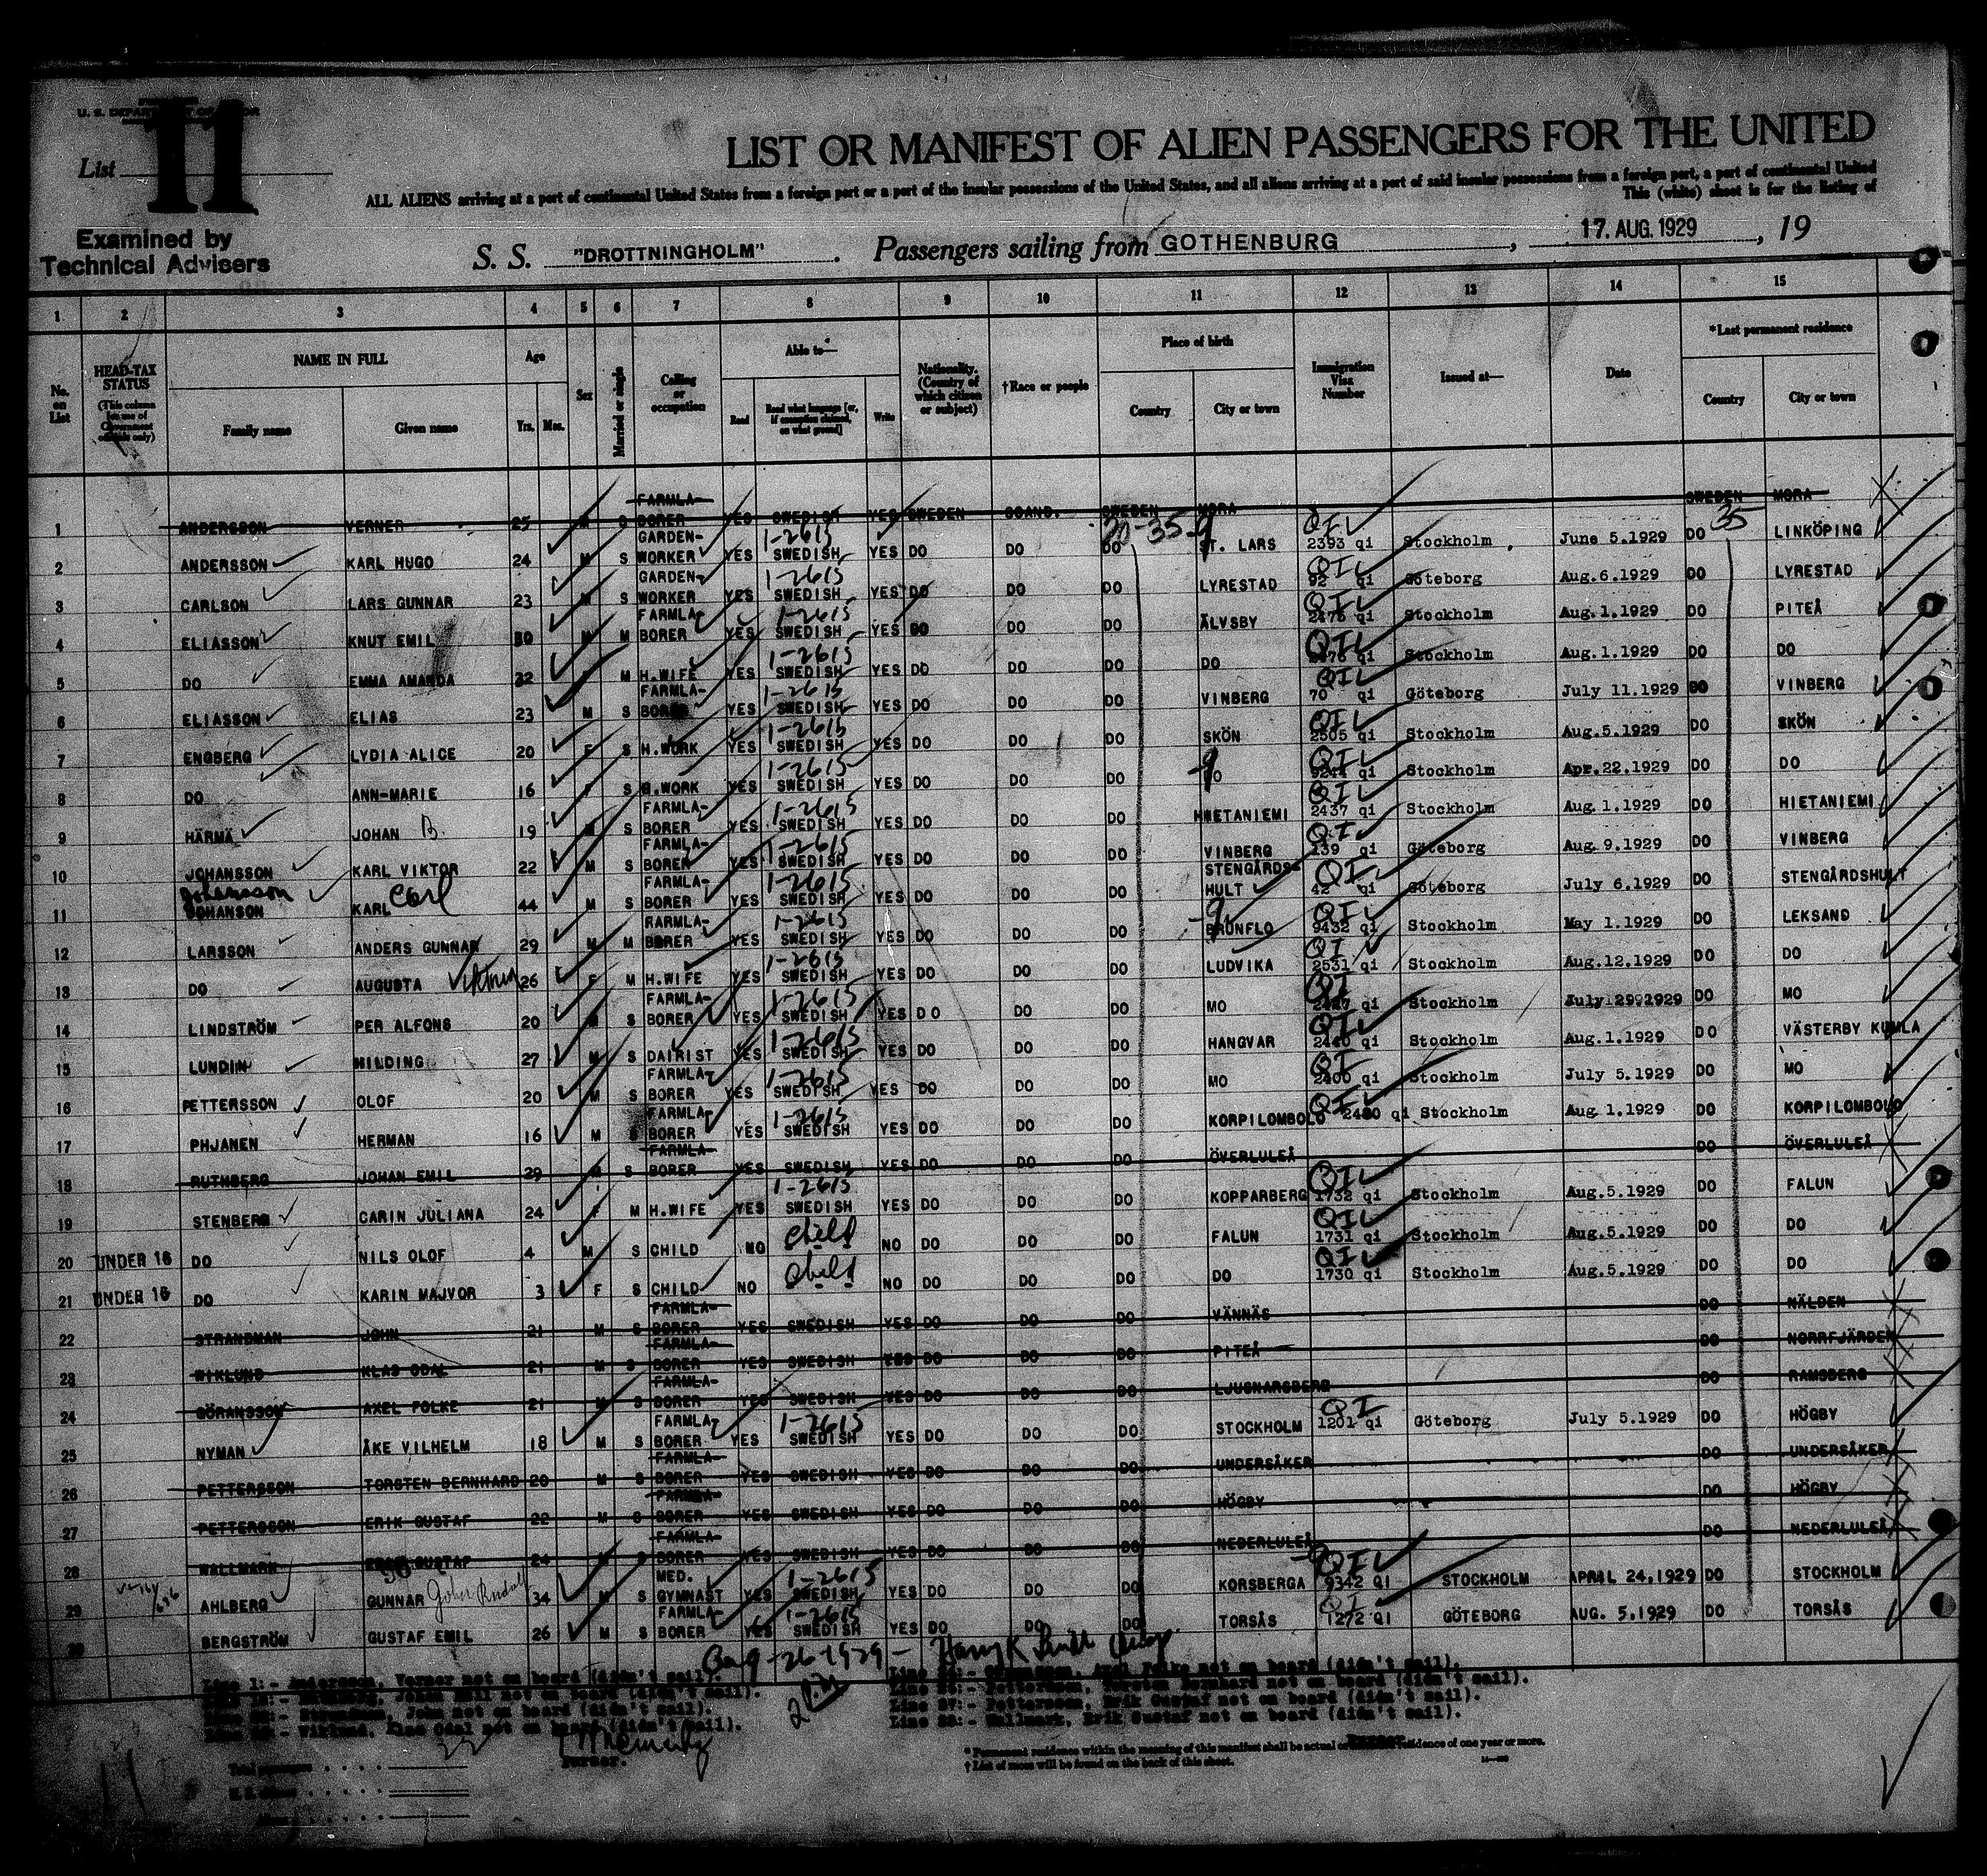 U. S. DEPARTMENT OF LABOR
List 11
LIST OR MANIFEST OF ALIEN PASSENGERS FOR THE UNITED
ALL ALIENS arriving at a port of continental United States from a foreign port or a port of the insular possessions of the United States, and all aliens arriving at a port of said insular possessions from a foreign port, a port of continental United
This (white) sheet is for the listing of
Examined by
Technical Advisers
S. S. "DROTTNINGHOLM". Passengers sailing from GOTHENBURG, 17. AUG. 1929, 19
1 2 3 4 5 6 7 8 9 10 11 12 13 14 15
No. on List
HEAD-TAX STATUS (This column for use of Government officials only)
NAME IN FULL
Family name Given name
Age
Yrs. Mos.
Sex
Married or single
Calling or occupation
Able to—
Read Read what language [or, if exemption claimed, on what ground] Write
Nationality. (Country of which citizen or subject)
†Race or people
Place of birth
Country City or town
Immigration Visa Number
Issued at—
Date
*Last permanent residence
Country City or town
1 ANDERSSON VERNER 25 M S FARMLA-BORER YES SWEDISH YES SWEDEN SCAND. SWEDEN MORA SWEDEN MORA
20-35 35
2 ANDERSSON KARL HUGO 24 M S GARDEN-WORKER YES 1-2615 SWEDISH YES DO DO DO ST. LARS QIV 2393 qi Stockholm June 5.1929 DO LINKÖPING
3 CARLSON LARS GUNNAR 23 M S GARDEN-WORKER YES 1-2615 SWEDISH YES DO DO DO LYRESTAD QIV 92 qi Göteborg Aug.6.1929 DO LYRESTAD
4 ELIASSON KNUT EMIL 30 M M FARMLA-BORER YES 1-2615 SWEDISH YES DO DO DO ÄLVSBY QIV 2475 qi Stockholm Aug.1.1929 DO PITEÅ
5 DO EMMA AMANDA 32 F M H.WIFE YES 1-2615 SWEDISH YES DO DO DO DO QIV 2476 qi Stockholm Aug.1.1929 DO DO
6 ELIASSON ELIAS 23 M S FARMLA-BORER YES 1-2615 SWEDISH YES DO DO DO VINBERG QIV 70 qi Göteborg July 11.1929 DO VINBERG
7 ENGBERG LYDIA ALICE 20 F S H.WORK YES 1-2615 SWEDISH YES DO DO DO SKÖN QIV 2505 qi Stockholm Aug.5.1929 DO SKÖN
8 DO ANN-MARIE 16 F S H.WORK YES 1-2615 SWEDISH YES DO DO DO DO QIV 9244 qi Stockholm Apr.22.1929 DO DO
9 HÄRMÄ JOHAN B. 19 M S FARMLA-BORER YES 1-2615 SWEDISH YES DO DO DO HIETANIEMI QIV 2437 qi Stockholm Aug.1.1929 DO HIETANIEMI
10 JOHANSSON KARL VIKTOR 22 M S FARMLA-BORER YES 1-2615 SWEDISH YES DO DO DO VINBERG QIV 139 qi Göteborg Aug.9.1929 DO VINBERG
11 Johansson JOHANSON KARL Carl 44 M S FARMLA-BORER YES 1-2615 SWEDISH YES DO DO DO STENGÅRDS-HULT QIV 42 qi Göteborg July 6.1929 DO STENGÅRDSHULT
12 LARSSON ANDERS GUNNAR 29 M M RARMLA-BORER YES 1-2615 SWEDISH YES DO DO DO BRUNFLO QIV 9432 qi Stockholm May 1.1929 DO LEKSAND
13 DO AUGUSTA Viktoria 26 F M H.WIFE YES 1-2615 SWEDISH YES DO DO DO LUDVIKA QI 2531 qi Stockholm Aug.12.1929 DO DO
14 LINDSTRÖM PER ALFONS 20 M S FARMLA-BORER YES 1-2615 SWEDISH YES DO DO DO MO QI 2427 qi Stockholm July 29.1929 DO MO
15 LUNDIN HILDING 27 M S DAIRIST YES 1-2615 SWEDISH YES DO DO DO HANGVAR QIV 2440 qi Stockholm Aug.1.1929 DO VÄSTERBY KUMLA
16 PETTERSSON OLOF 20 M S FARMLA-BORER YES 1-2615 SWEDISH YES DO DO DO MO QI 2400 qi Stockholm July 5.1929 DO MO
17 PHJANEN HERMAN 16 M S FARMLA-BORER YES 1-2615 SWEDISH YES DO DO DO KORPILOMBOLO QIV 2480 qi Stockholm Aug 1.1929 DO KORPILOMBOLO
18 RUTHBERG JOHAN EMIL 29 M S FARMLA-BORER YES SWEDISH YES DO DO DO ÖVERLULEÅ DO ÖVERLULEÅ
19 STENBERG CARIN JULIANA 24 F M H.WIFE YES 1-2615 SWEDISH YES DO DO DO KOPPARBERG QIV 1732 qi Stockholm Aug.5.1929 DO FALUN
20 UNDER 16 DO NILS OLOF 4 M S CHILD NO child NO DO DO DO FALUN QIV 1731 qi Stockholm Aug.5.1929 DO DO
21 UNDER 16 DO KARIN MAJVOR 3 F S CHILD NO child NO DO DO DO DO QIV 1730 qi Stockholm Aug.5.1929 DO DO
22 STRANDMAN JOHN 21 M S FARMLA-BORER YES SWEDISH YES DO DO DO VÄNNÄS DO NÄLDEN
23 WIKLUND KLAS ODAL 21 M S FARMLA-BORER YES SWEDISH YES DO DO DO PITEÅ DO NORRFJÄRDEN
24 GÖRANSSON AXEL FOLKE 21 M S FARMLA-BORER YES SWEDISH YES DO DO DO LJUSNARSBERG DO RAMSBERG
25 NYMAN ÅKE VILHELM 18 M S FARMLA-BORER YES 1-2615 SWEDISH YES DO DO DO STOCKHOLM QI 1201 qi Göteborg July 5.1929 DO HÖGBY
26 PETTERSSON TORSTEN BERNHARD 20 M S FARMLA-BORER YES SWEDISH YES DO DO DO UNDERSÅKER DO UNDERSÅKER
27 PETTERSSON ERIK GUSTAF 22 M S FARMLA-BORER YES SWEDISH YES DO DO DO HÖGBY DO HÖGBY
28 WALLMARK ERIK GUSTAF 24 M S FARMLA-BORER YES SWEDISH YES DO DO DO NEDERLULEÅ DO NEDERLULEÅ
29 AHLBERG GUNNAR John Rudolf 34 M S MED. GYMNAST YES 1-2615 SWEDISH YES DO DO DO KORSBERGA QIV 9342 QI STOCKHOLM APRIL 24.1929 DO STOCKHOLM
30 BERGSTRÖM GUSTAF EMIL 26 M S FARMLA-BORER YES 1-2615 SWEDISH YES DO DO DO TORSÅS QI 1272 QI GÖTEBORG AUG. 5.1929 DO TORSÅS
Aug-26-1929 - Harry K
Line 1:- Andersson, Verner not on board (didn't sail).
Line 18:- Ruthberg, Johan Emil not on board (didn't sail).
Line 22:- Strandman, John not on board (didn't sail).
Line 23:- Wiklund, Klas Odal not on board (didn't sail).
Line 24:- Göransson, Axel Folke not on board (didn't sail).
Line 26:- Pettersson, Torsten Bernhard not on board (didn't sail).
Line 27:- Pettersson, Erik Gustaf not on board (didn't sail).
Line 28:- Wallmark, Erik Gustaf not on board (didn't sail).
22
Purser.
* Permanent residence within the meaning of this manifest shall be actual or intended residence of one year or more.
† List of races will be found on the back of this sheet.
Total passengers
U. S. citizens
Aliens